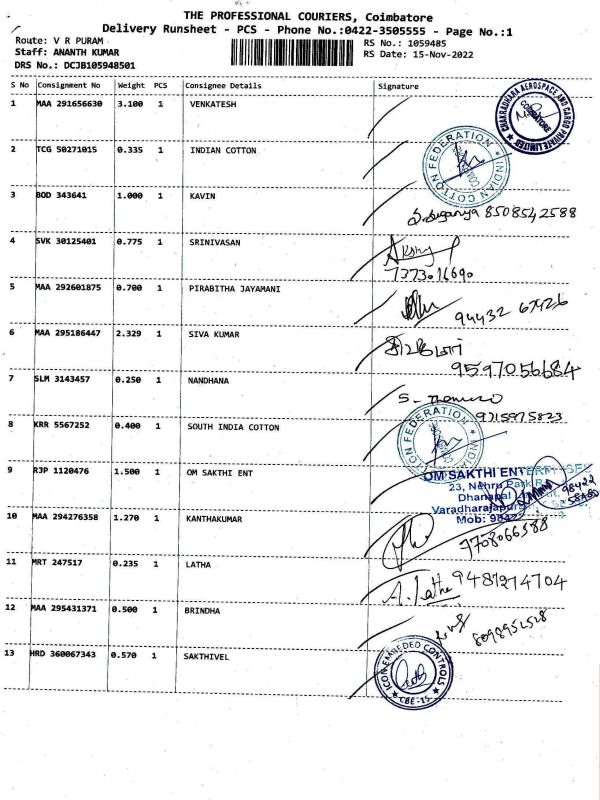 THE PROFESSIONAL COURIERS, Coimbatore
Delivery Runsheet - PCS - Phone No.:0422-3505555 - Page No.:1
Route: V R PURAM
RS No.: 1059485
Staff: ANANTH KUMAR
RS Date: 15-Nov-2022
DRS No.: DCJB105948501
S No Consignment No Weight PCS Consignee Details Signature
1 MAA 291656630 3.100 1 VENKATESH
CHAKRADHARA AEROSPACE AND CARGO PRIVATE LIMITED COIMBATORE
2 TCG 50271015 0.335 1 INDIAN COTTON
INDIAN COTTON FEDERATION
3 BOD 343641 1.000 1 KAVIN
8508542588
4 SVK 30125401 0.775 1 SRINIVASAN
7373016690
5 MAA 292601875 0.700 1 PIRABITHA JAYAMANI
94432 67426
6 MAA 295186447 2.329 1 SIVA KUMAR
9597056684
7 SLM 3143457 0.250 1 NANDHANA
8 KRR 5567252 0.400 1 SOUTH INDIA COTTON
COTTON FEDERATION
9 RJP 1120476 1.500 1 OM SAKTHI ENT
OM SAKTHI
23, Nehru Park
Dhanapal
Mob:
10 MAA 294276358 1.270 1 KANTHAKUMAR
7708066588
11 MRT 247517 0.235 1 LATHA
A. Latha 9487274704
12 MAA 295431371 0.500 1 BRINDHA
13 HRD 360067343 0.570 1 SAKTHIVEL
ICON EMBEDED CONTROLS
CBE-15